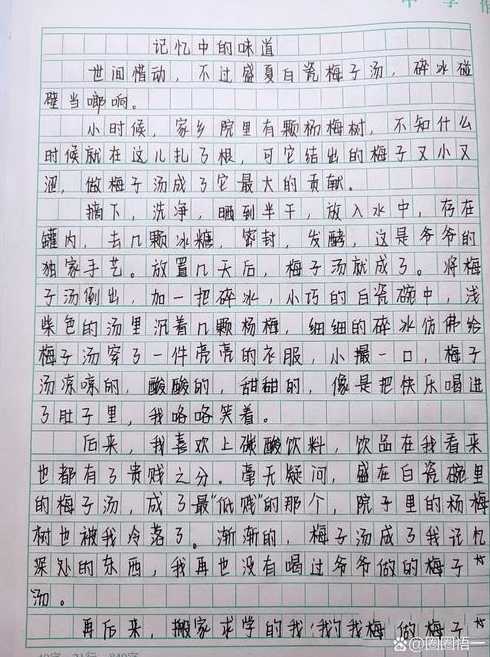 中学作
记忆中的味道
世间惜动，不过盛夏白瓷梅子汤，碎冰碰
壁当啷响。
小时候，家乡院里有颗杨梅树，不知什么
时候就在这儿扎了根，可它结出的梅子又小又
涩，做梅子汤成了它最大的贡献。
摘下，洗净，晒到半干，放入水中，存在
罐内，去几颗冰糖，密封，发酵，这是爷爷的
独家手艺。放置几天后，梅子汤就成了。将梅
子汤倒出，加一把碎冰，小巧的白瓷碗中，浅
柴色的汤里沉着几颗杨梅，细细的碎冰仿佛给
梅子汤穿了一件亮亮的衣服，小撮一口，梅子
汤凉凉的，酸酸的，甜甜的，像是把快乐喝进
了肚子里，我咯咯笑着。
后来，我喜欢上碳酸饮料，饮品在我看来
也都有了贵贱之分。毫无疑问，盛在白瓷碗里
的梅子汤，成了最“低贱”的那个，院子里的杨梅
树也被我冷落了。渐渐的，梅子汤成了我记忆
深处的东西，我再也没有喝过爷爷做的梅子
汤。
再后来，搬家求学的我
做梅子
@圈圈悟一